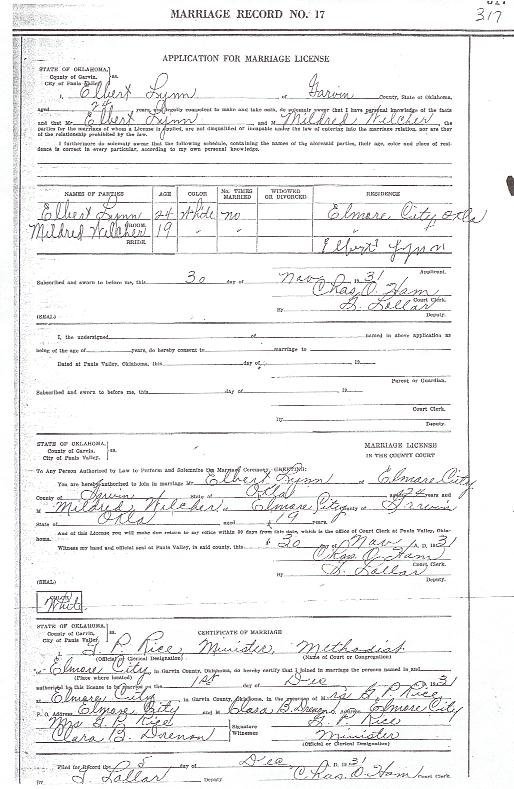 MARRIAGE RECORD NO. 17
317
APPLICATION FOR MARRIAGE LICENSE
STATE OF OKLAHOMA,
County of Garvin, ss.
City of Pauls Valley
I, Elbert Lynn of Garvin County, State of Oklahoma,
aged 24 years, and legally competent to make and take oath, do solemnly swear that I have personal knowledge of the facts
and that Mr. Elbert Lynn and M Mildred Wilcher, the
parties for the marriage of whom a License is applied, are not disqualified or incapable under the law of entering into the marriage relation, nor are they
of the relationship prohibited by the law.
I furthermore do solemnly swear that the following schedule, containing the names of the aforesaid parties, their age, color and place of resi-
dence is correct in every particular, according to my own personal knowledge.
NAMES OF PARTIES AGE COLOR No. TIMES MARRIED WIDOWED OR DIVORCED RESIDENCE
Elbert Lynn GROOM. 24 White no Elmore City Okla
Mildred Wilcher BRIDE. 19 " " "
Elbert Lynn
Applicant.
Subscribed and sworn to before me, this 30 day of Nov 1931
Chas. O. Ham
Court Clerk.
By G. Lollar
Deputy.
(SEAL)
I, the undersigned of named in above application as
being of the age of years, do hereby consent to marriage to
Dated at Pauls Valley, Oklahoma, this day of 19
Parent or Guardian.
Subscribed and sworn to before me, this day of 19
Court Clerk.
By
Deputy.
STATE OF OKLAHOMA,
County of Garvin, ss.
City of Pauls Valley
MARRIAGE LICENSE
IN THE COUNTY COURT
To Any Person Authorized by Law to Perform and Solemnize the Marriage Ceremony, GREETING:
You are hereby authorized to join in marriage Mr. Elbert Lynn of Elmore City
County of Garvin State of Okla aged 24 years and
M Mildred Wilcher of Elmore City County of Garvin
State of Okla aged 19 years
And of this License you will make due return to my office within 30 days from this date, which is the office of Court Clerk at Pauls Valley, Okla-
homa.
Witness my hand and official seal at Pauls Valley, in said county, this 30 day of Nov A. D. 1931
Chas. O. Ham
Court Clerk.
By G. Lollar
Deputy.
(SEAL)
White
STATE OF OKLAHOMA,
County of Garvin, ss.
City of Pauls Valley
CERTIFICATE OF MARRIAGE
I, G. P. Rice Minister, Methodist
(Official or Clerical Designation) (Name of Court or Congregation)
of Elmore City in Garvin County, Oklahoma, do hereby certify that I joined in marriage the persons named in and
(Place where located)
authorized by this License to be married on the 1st day of Dec 1931
at Elmore City in Garvin County, Oklahoma, in the presence of Mrs G. P. Rice
P. O. Address Elmore City and in Clara B. Drennon, Address Elmore City
Mrs G. P. Rice
Clara B. Drennon
Signature
Witnesses
G. P. Rice
Minister
(Official or Clerical Designation)
Filed for Record the 5 day of Dec A. D. 1931
By G. Lollar Deputy Chas. O. Ham Court Clerk.